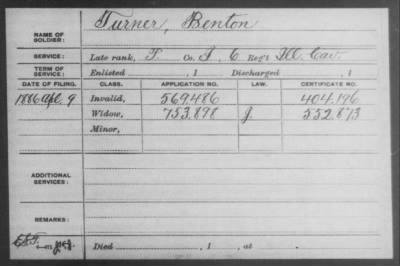 NAME OF SOLDIER: Turner, Benton
SERVICE: Late rank, P. Co. I, 6 Reg't Ill. Cav.
TERM OF SERVICE: Enlisted , 1 Discharged , 1
DATE OF FILING. CLASS. APPLICATION NO. LAW. CERTIFICATE NO.
1886 Apl. 9 Invalid, 569.486 404.196
Widow, 753.898 J 552.873
Minor,
ADDITIONAL SERVICES:
REMARKS:
Died , 1 , at .